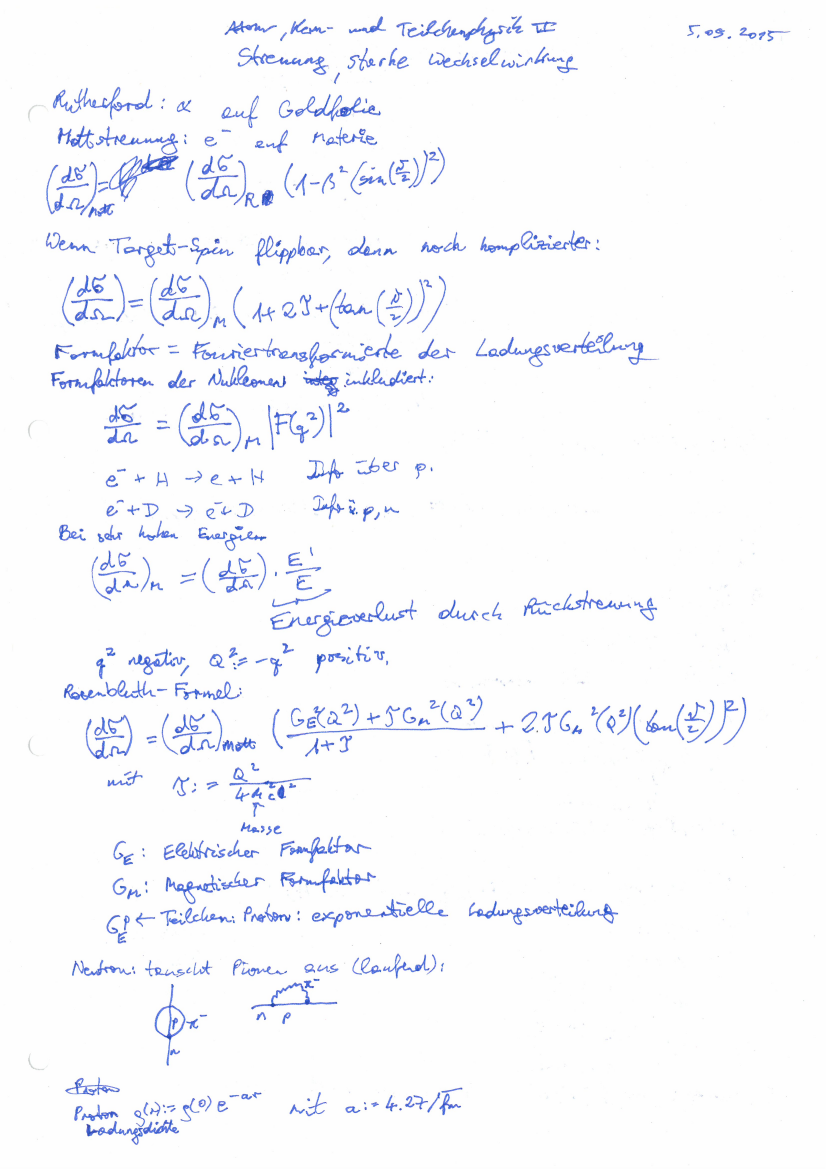 Atom, Kern- und Teilchenphysik II 5.09.2015
Streuung, starke Wechselwirkung
Rutherford: α auf Goldfolie
Mottstreuung: e⁻ auf Materie
(dσ/dΩ)_Mott = (dσ/dΩ)_R (1-β² (sin(ϑ/2))²)
Wenn Target-Spin flippbar, dann noch komplizierter:
(dσ/dΩ) = (dσ/dΩ)_M (1+2τ+(tan(ϑ/2))²)
Formfaktor = Fouriertransformierte der Ladungsverteilung
Formfaktoren der Nukleonen inkludiert:
dσ/dΩ = (dσ/dΩ)_M |F(q²)|²
e⁻ + H → e + H Info über p.
e⁻ + D → e⁻ + D Info ü. p, n
Bei sehr hohen Energien
(dσ/dΩ)_M = (dσ/dΩ) · E'/E
Energieverlust durch Rückstreuung
q² negativ, Q² := -q² positiv.
Rosenbluth-Formel:
(dσ/dΩ) = (dσ/dΩ)_Mott ((G_E²(Q²) + τG_M²(Q²))/(1+τ) + 2·τG_M²(Q²)(tan(ϑ/2))²)
mit τ := Q²/(4M²c²)
↑
Masse
G_E: Elektrischer Formfaktor
G_M: Magnetischer Formfaktor
G_E^p ← Teilchen: Proton: exponentielle Ladungsverteilung
Neutron: tauscht Pionen aus (laufend):
p π⁻ n
π⁻ n p
Proton
Proton ρ(r) := ρ(0) e^(-ar) mit a := 4.27/fm
Ladungsdichte